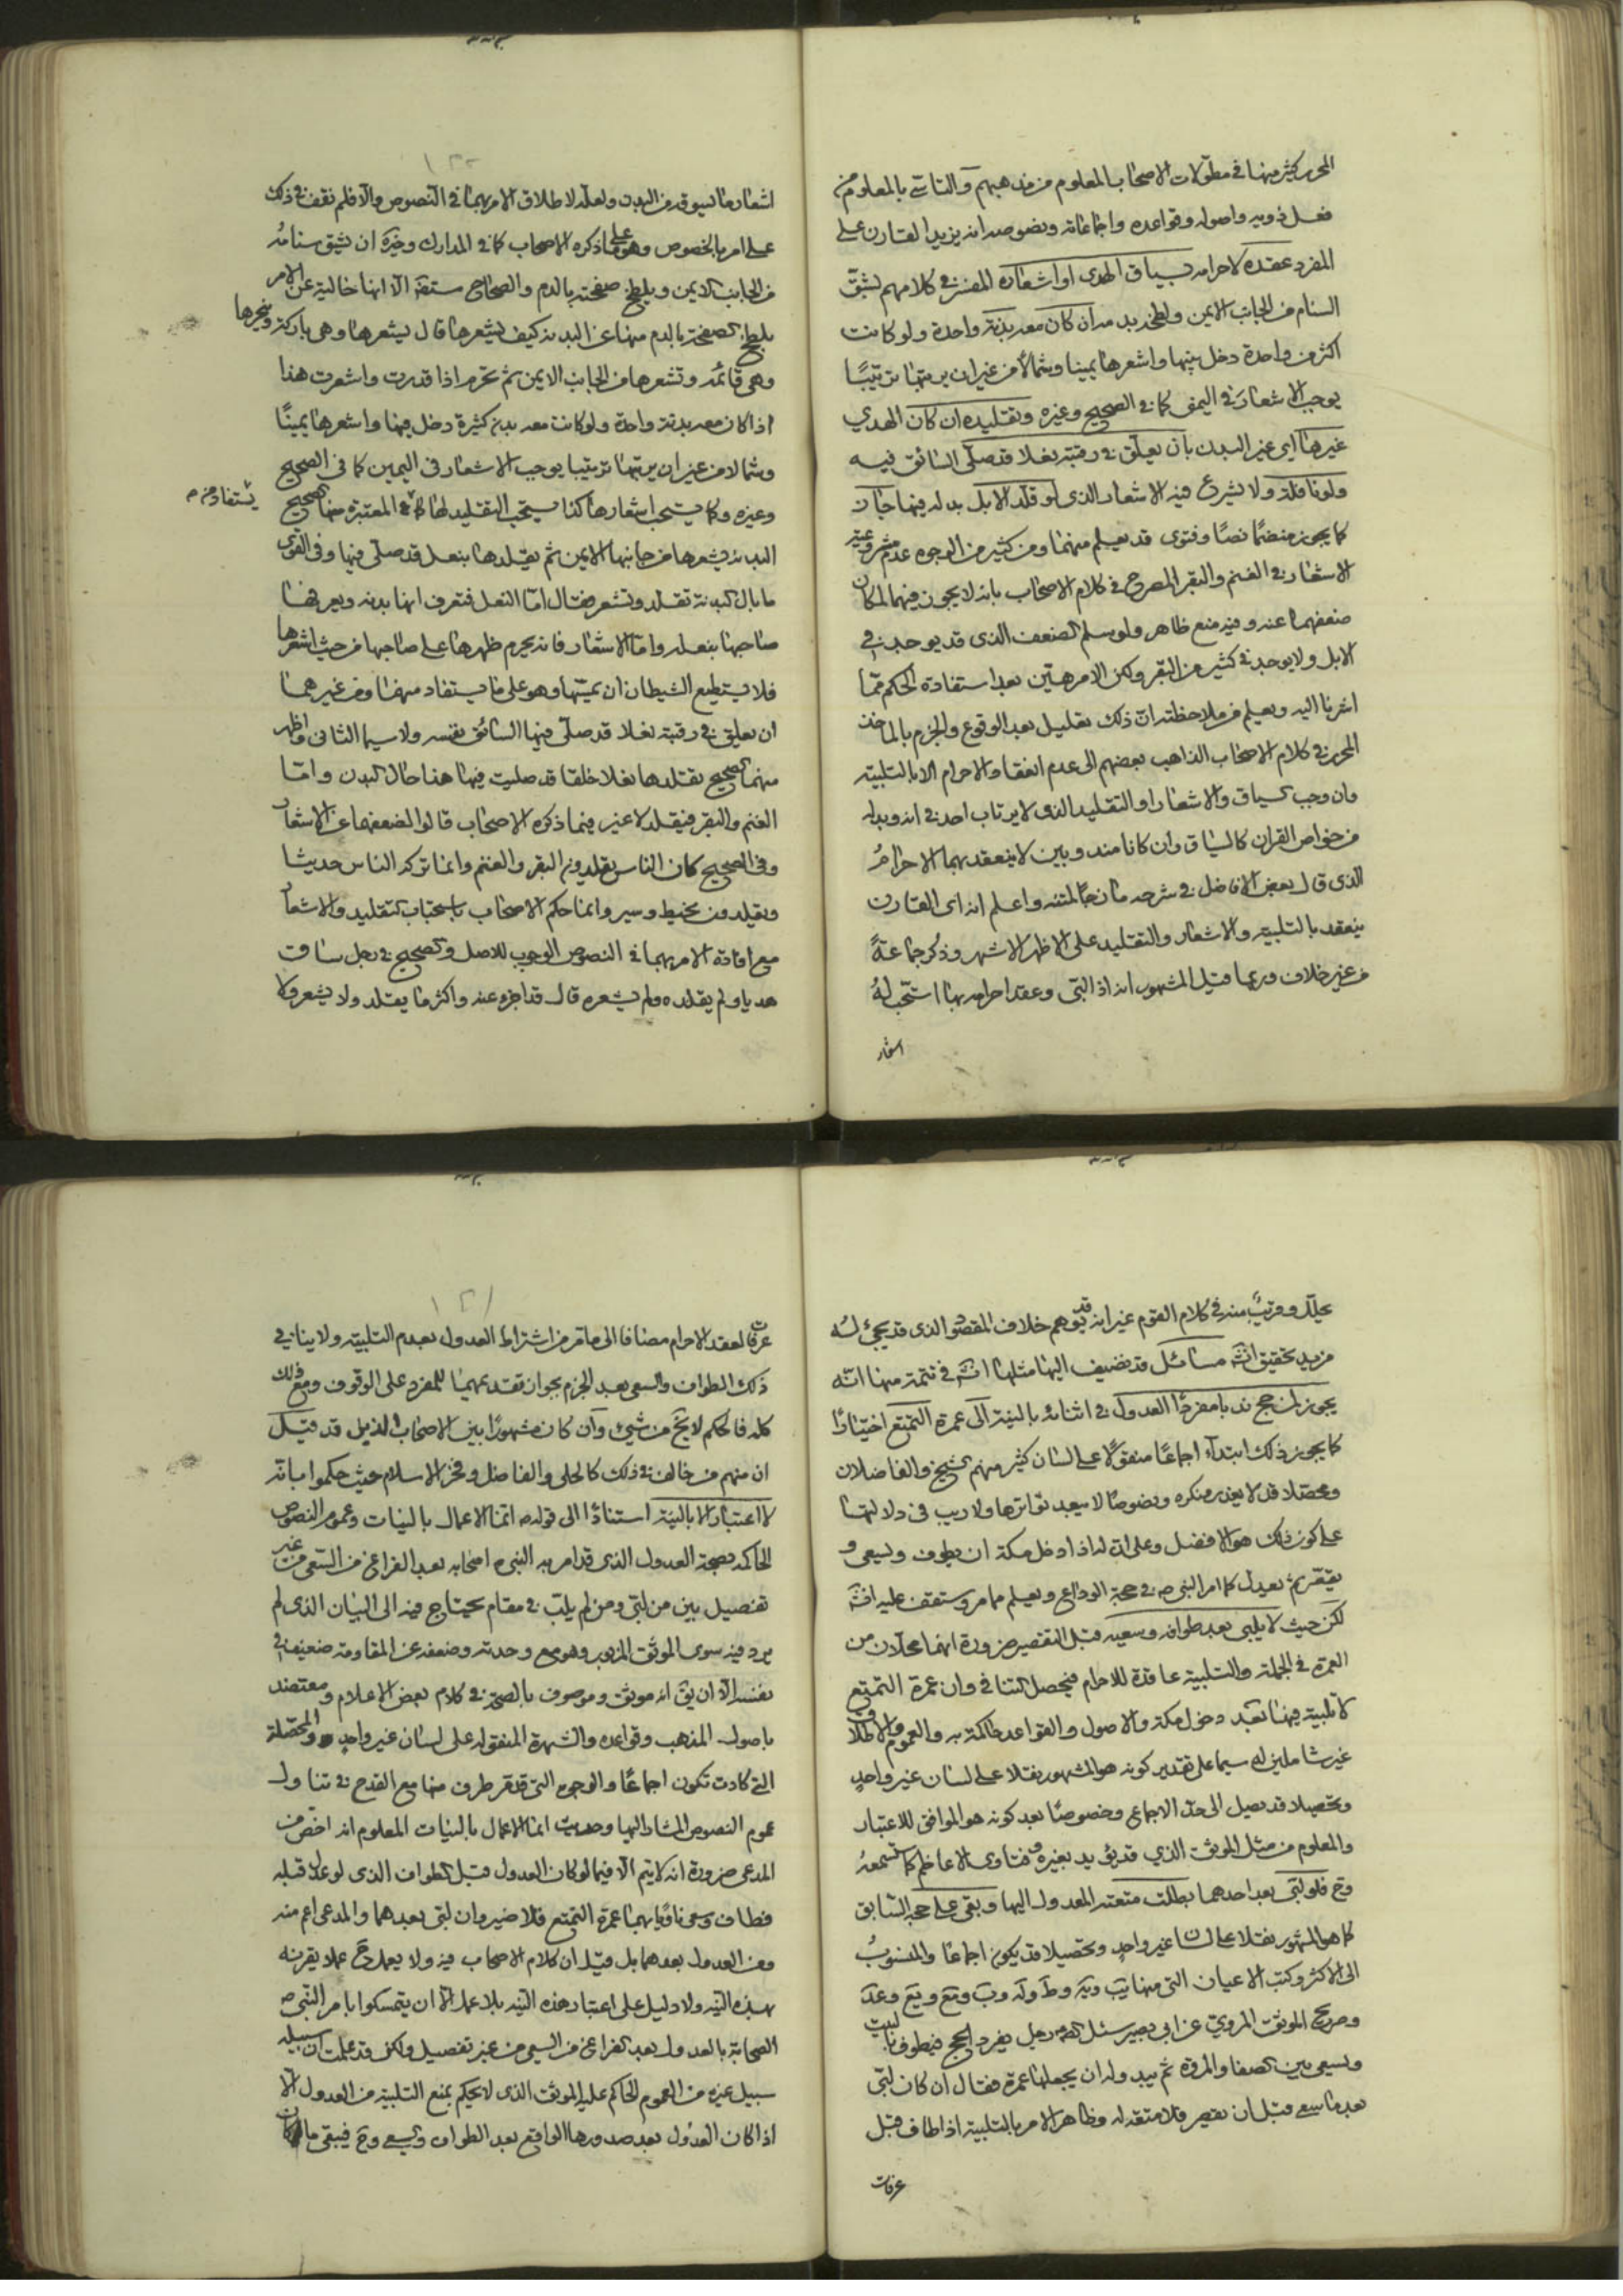 المحرر كثير منها في مطولات الاصحاب المعلوم من مذهبهم والناسي بالمعلوم من
فعل ذويه واصوله وقواعده واجماعاته ونصوصه انه يزيد القارن على
المفرد عقده لاحرامه بسياق الهدى او اشعاره المفسر في كلامهم بشق
السنام من الجانب الايمن ولطخه بدمه ان كان معه بدنة واحدة ولو كانت
اكثر من واحدة دخل بينها واشعرها يمينا وشمالا من غير ان يرتبها ترتيبا
يوجب الاشعار في اليمنى كما في الصحيح وغيره وتقليده ان كان الهدي
غيرها اي غير البدن بان يعلق في رقبته نعلا قد صلى السائق فيه
ولو نافلة ولا يشرع فيه الاشعار الذي لو قلد الابل بدله فيها جاز
كما يجوز منضما نصا وفتوى قد يعلم منهما ومن كثير من الوجوه عدم مشروعية
الاشعار في الغنم والبقر المصرح في كلام الاصحاب بانه لا يجوز فيهما لمكان
ضعفهما عنه وفيه منع ظاهر ولو سلم الضعف الذي قد يوجد في
الابل ولا يوجد في كثير من البقر ولكن الامر هين بعد استفادة الحكم مما
اشرنا اليه ويعلم من ملاحظته ان ذلك تعليل بعد الوقوع والجزم بالماخذ
المحرر في كلام الاصحاب الذاهب بعضهم الى عدم انعقاد الاحرام الا بالتلبية
وان وجب السياق والاشعار او التقليد الذي لا يرتاب احد في انه وبدله
من خواص القران كالسياق وان كانا مندوبين لا ينعقد بهما الاحرام
الذي قال بعض الافاضل في شرحه مازجا لمتنه واعلم انه اي القارن
ينعقد بالتلبية والاشعار والتقليد على الاظهر الاشهر وذكر جماعة
من غير خلاف وربما قيل المشهور انه اذا لبى وعقد احرامه بها استحب له
اشعار
اشعار ما يسوقه من البدن ولعله لاطلاق الامر بهما في النصوص والا فلم نقف في ذلك
على امر بالخصوص وهو على ما ذكره الاصحاب كما في المدارك وغيره ان يشق سنامه
من الجانب الايمن ويلطخ صفحته بالدم والصحاح مستفيضة الا انها خالية عن الامر
بلطخ الصفحة بالدم منها عن البدنة كيف يشعرها قال يشعرها وهي باركة وينحرها
وهي قائمة وتشعرها من الجانب الايمن ثم تحرم اذا قدرت واشعرت هذا
اذا كان معه بدنة واحدة ولو كانت معه بدن كثيرة دخل فيها واشعرها يمينا
وشمالا من غير ان يرتبها ترتيبا يوجب الاشعار في اليمين كما في الصحيح
وغيره وكما يستحب اشعارها كذا يستحب التقليد لها كما في المعتبرة منها الصحيح
يستفاد من م
البدنة يشعرها من جانبها الايمن ثم يقلدها بنعل قد صلى فيها وفي القوى
ما بال البدنة تقلد وتشعر فقال اما النعل فتعرف انها بدنة ويعرفها
صاحبها بنعله واما الاشعار فانه يحرم ظهرها على صاحبها من حيث اشعرها
فلا يستطيع الشيطان ان يمسها وهو على ما يستفاد منهما ومن غيرهما
ان يعلق في رقبته نعلا قد صلى فيها السائق نفسه ولا سيما الثاني واظهر
منهما الصحيح تقلدها نعلا خلقا قد صليت فيها هذا حال البدن واما
الغنم والبقر فيقلد لا غير فيما ذكره الاصحاب قالوا لضعفهما عن الاشعار
وفي الصحيح كان الناس يقلدون البقر والغنم وانما تركه الناس حديثا
ويقلدون بخيط وسير وانما حكم الاصحاب باستحباب التقليد والاشعار
مع افادة الامر بهما في النصوص الوجوب للاصل والصحيح في رجل ساق
هديا ولم يقلده ولم يشعره قال قد اجزء عنه واكثر ما يقلد ولا يشعر ولا
يحلله وقريب منه في كلام القوم غير انه قد يوهم خلاف المقصود الذي قد يجيء له
مزيد تحقيق انشه مسائل قد نضيف اليها مثلها انشه في تتمة منها انه
يجوز لمن حج ندبا مفردا العدول في اثنائه بالنية الى عمرة التمتع اختيارا
كما يجوز ذلك ابتداء اجماعا منقولا على لسان كثير منهم الشيخ والفاضلان
ومحصلا قد لا يعذر منكره ونصوصا لا يبعد تواترها ولا ريب في دلالتها
على كون ذلك هو الافضل وعلى ان له اذا دخل مكة ان يطوف ويسعى و
يقصر ثم يعدل كما امر النبي ص في حجة الوداع ويعلم مما مر وستقف عليه انشه
لكن حيث لا يلبى بعد طوافه وسعيه قبل التقصير ضرورة انهما محللان من
العمرة في الجملة والتلبية عاقدة للاحرام فيحصل التنافي وان عمرة التمتع
لا تلبية فيها بعد دخول مكة والاصول والقواعد حاكمة به والعموم والاطلاق
غير شاملين له سيما على تقدير كونه هو المشهور نقلا على لسان غير واحد
وتحصيلا قد يصل الى حد الاجماع وخصوصا بعد كونه هو الموافق للاعتبار
والمعلوم من مثل الموثق الذي قد يؤيد بغيره وفتاوى الاعاظم كما تسمعه
وح فلو لبى بعد احدهما بطلت متعته المعدول اليها وبقي على حجه السابق
كما هو المشهور نقلا على لسان غير واحد وتحصيلا قد يكون اجماعا والمنسوب
الى الاكثر وكتب الاعيان التي منها يب
وصريح الموثق المروي عن ابي بصير سئل رجل يفرد الحج فيطوف بالبيت
ويسعى بين الصفا والمروة ثم يبدو له ان يجعلها عمرة فقال ان كان لبى
بعد ما سعى قبل ان يقصر فلا متعة له وظاهر الامر بالتلبية اذا طاف قبل
عرفات
عرفات لعقد الاحرام مضافا الى ما مر من اشتراط العدول بعدم التلبية ولا ينافي
ذلك الطواف والسعي بعد الجزم بجواز تقديمهما للمفرد على الوقوف ومع ذلك
كله فالحكم لا يخ من شيء وان كان مشهورا بين الاصحاب الذين قد قيل
ان منهم من خالف في ذلك كالحلي والفاضل وفخر الاسلام حيث حكموا بانه
لا اعتبار الا بالنية استنادا الى قوله ص انما الاعمال بالنيات وعموم النصوص
الحاكمة بصحة العدول الذي قد امر به النبي ص اصحابه بعد الفراغ من السعي من غير
تفصيل بين من لبى ومن لم يلب في مقام يحتاج فيه الى البيان الذي لم
يرد فيه سوى الموثق المزبور وهو مع وحدته وضعفه عن المقاومة ضعيف في
نفسه الا ان يق انه موثق وموصوف بالصحة في كلام بعض الاعلام ومعتضد
باصول المذهب وقواعده والشهرة المنقولة على لسان غير واحد والمحصلة
التي كادت تكون اجماعا والوجوه التي قد مر طرف منها مع القدح في تناول
عموم النصوص المشار اليها وحديث انما الاعمال بالنيات المعلوم انه اخص من
المدعى ضرورة انه لا يتم الا فيما لو كان العدول قبل الطواف الذي لو عدل قبله
فطاف وسعى ناويا بهما عمرة التمتع فلا ضير وان لبى بعدهما والمدعى اعم منه
ومن العدول بعدهما بل قيل ان كلام الاصحاب فيه ولا يعمل ح عملا يقرنه
بهذه النية ولا دليل على اعتبار هذه النية بلا عمل الا ان يتمسكوا بامر النبي ص
الصحابة بالعدول بعد الفراغ من السعي من غير تفصيل ولكن قد علمت ان سبيله
سبيل غيره من العموم الحاكم عليه الموثق الذي لا يحكم بمنع التلبية من العدول الا
اذا كان العدول بعد صدورها الواقع بعد الطواف والسعي وح فيبقى ما كان